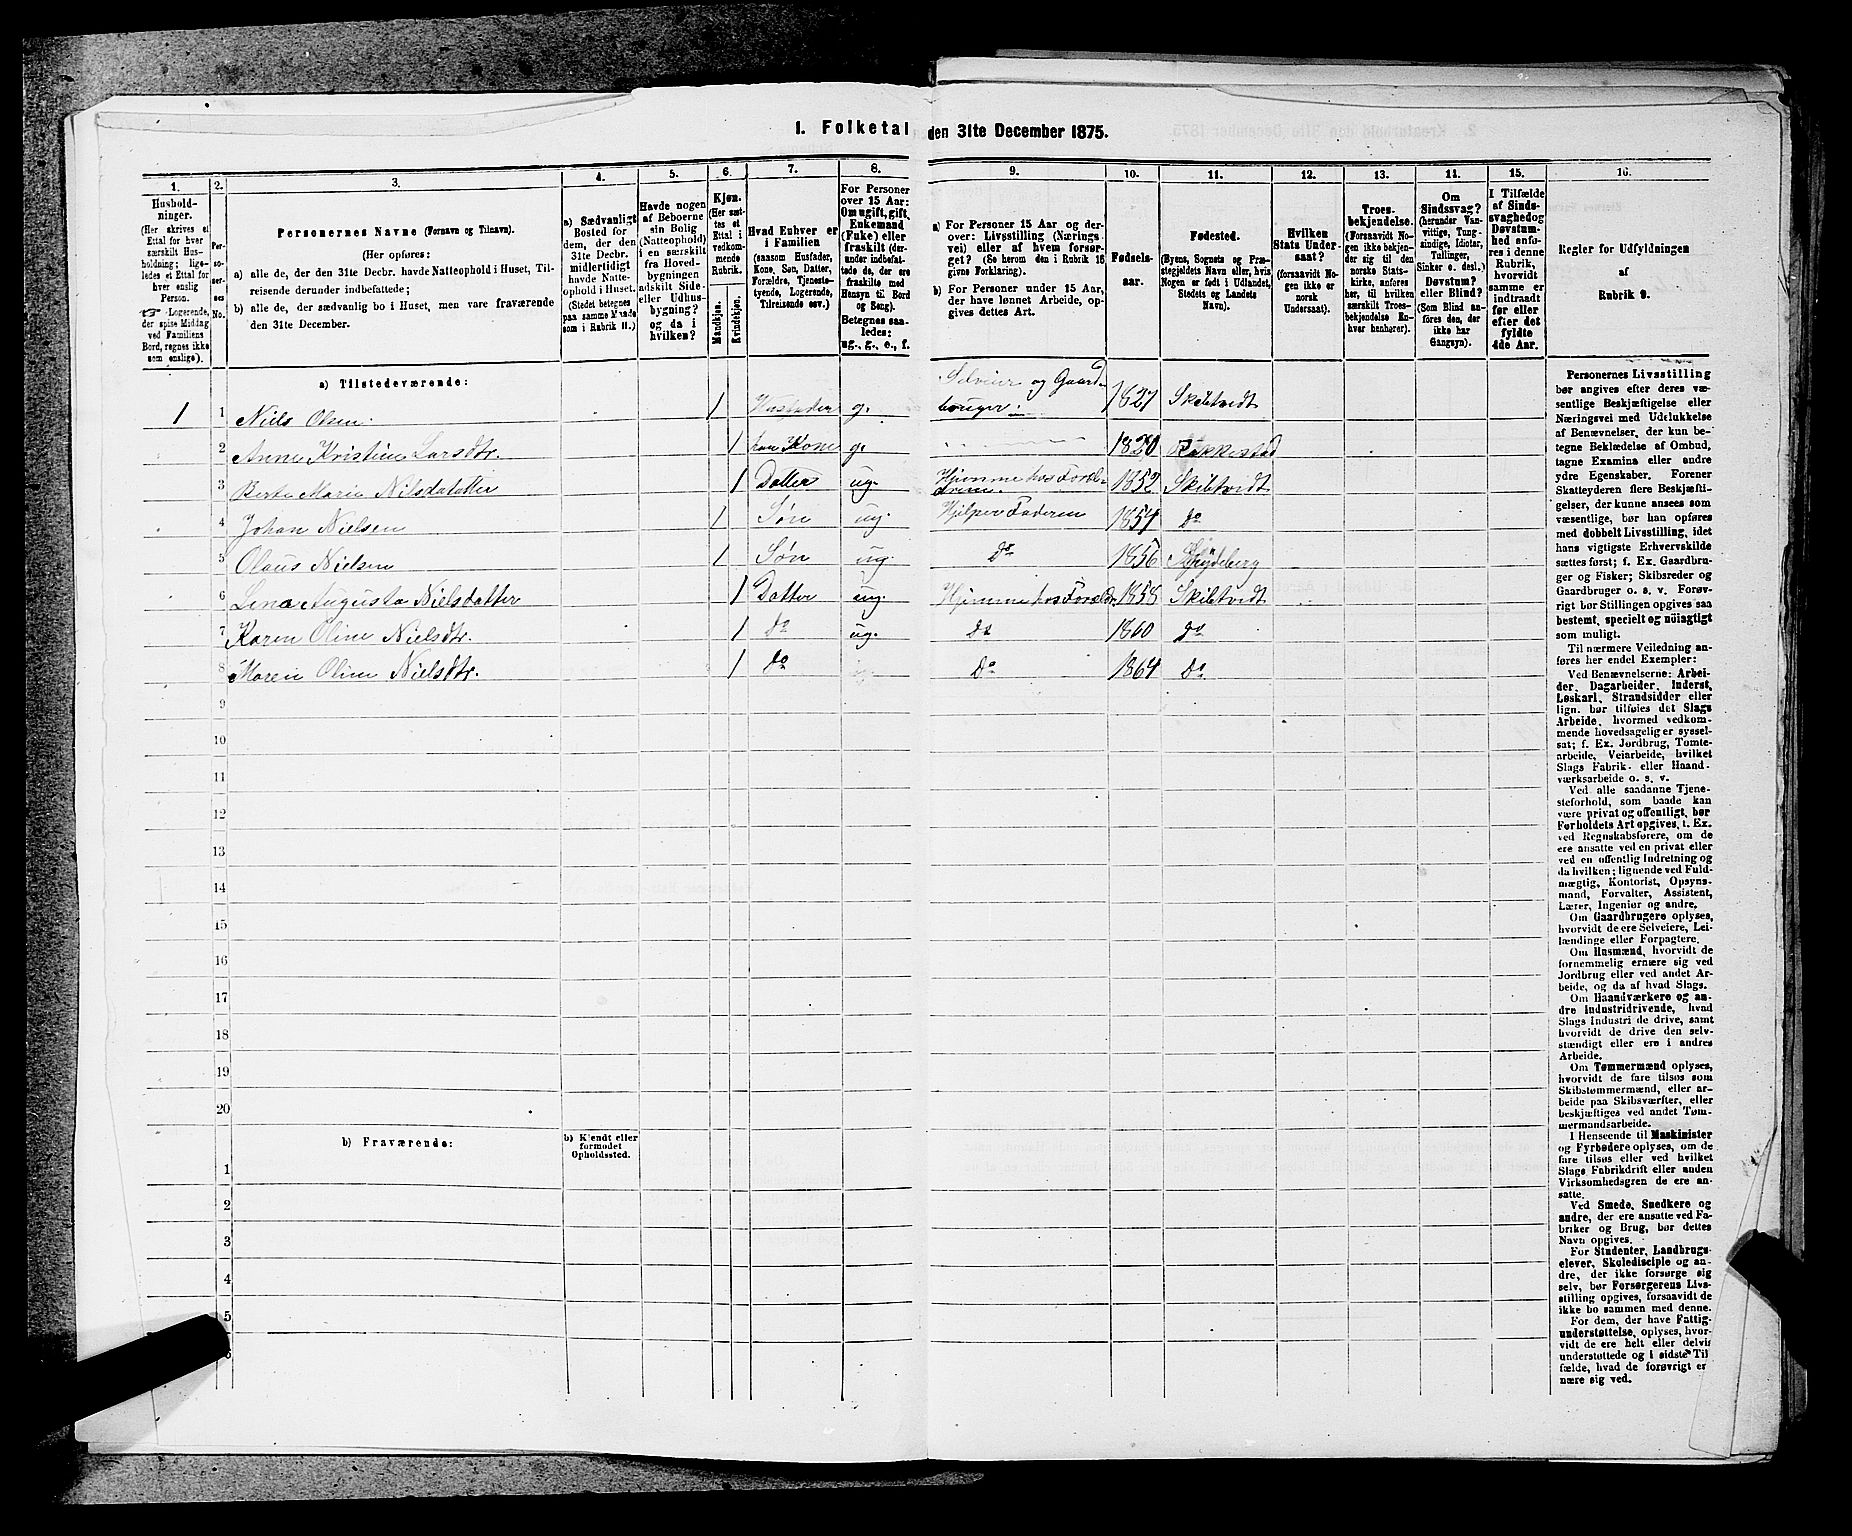 1. Folketal den 31te December 1875.
1.
Hushold-
ninger.
(Her skrives et
Ettal for hver
særskilt Hus-
holdning; lige-
ledes et Ettal for
hver enslig
Person.
Logerende,
der spise Middag
ved Familiens
Bord, regnes ikke
som enslige).
2.
Per-
so-
ner-
nes
No.
3.
Personernes Navne (Fornavn og Tilnavn).
(Her opføres:
a) alle de, der den 31te Decbr. havde Natteophold i Huset, Til-
reisende derunder indbefattede;
b) alle de, der sædvanlig bo i Huset, men vare fraværende
den 31te December.
4.
a) Sædvanligt
Bosted for
dem, der den
31te Decbr.
midlertidigt
havde Natte-
ophold i Huset.
(Stedet betegnes
paa samme Maade
som i Rubrik 11.)
5.
Havde nogen
af Beboerne
sin Bolig
(Natteophold)
i en særskilt
fra Hoved-
bygningen
adskilt Side-
eller Udhus-
bygning?
og da i
hvilken?
6.
Kjøn.
(Her sæt-
tes et
Ettal i
vedkom-
mende
Rubrik.
Mandkjøn.
Kvindekjøn.
7.
Hvad Enhver er
i Familien
(saasom Husfader,
Kone, Søn, Datter,
Forældre, Tjeneste-
tyende, Logerende,
Tilreisende osv.)
8.
For Personer
over 15 Aar:
Om ugift, gift,
Enkemand
(Enke) eller
fraskilt (der-
under indbefat-
tede de, der ere
fraskilte med
Hensyn til Bord
og Seng).
Betegnes saa-
ledes:
ug., g., e., f.
9.
a) For Personer 15 Aar og der-
over: Livsstilling (Nærings-
vei) eller af hvem forsør-
get? (Se herom den i Rubrik 16
givne Forklaring).
b) For Personer under 15 Aar,
der have lønnet Arbeide, op-
gives dettes Art.
10.
Fødsels-
aar.
11.
Fødested.
(Byens, Sognets og Præ-
stegjeldets Navn eller, hvis
Nogen er født i Udlandet,
Stedets og Landets
Navn).
12.
Hvilken
Stats Under-
saat?
(forsaavidt No-
gen ikke er
norsk
Undersaat).
13.
Troes-
bekjendelse.
(Forsaavidt No-
gen ikke bekjen-
der sig til den
norske Stats-
kirke, anføres
her, til hvilken
særskilt Troes-
bekjendelse En-
hver henhører).
14.
Om
Sindssvag?
(herunder Van-
vittige, Tung-
sindige, Idioter,
Tullinger,
Sinker o. desl.)
Døvstum?
eller Blind?
(Som Blind an-
føres den, der
ikke har
Gangsyn).
15.
I Tilfælde
af Sinds-
svaghed og
Døvstum-
hed anfø-
res i denne
Rubrik,
hvorvidt
samme er
indtraadt
før eller
efter det
fyldte
4de Aar.
16.
Regler for Udfyldningen
af
Rubrik 9.
a) Tilstedeværende:
1 1 Niels Olsen. 1 Husfader g. Selveier og Gaard-
bruger. 1827 Skibtvedt
2 Anne Kristine Larsdtr. 1 hans Kone g. 1820 Rakkestad
3 Berte Marie Nilsdatter 1 Datter ug. Hjemme hos Foræl-
drene. 1852 Skibtvedt
4 Johan Nielsen 1 Søn ug. Hjelper Faderen 1854 do
5 Olaus Nielsen 1 Søn ug. do 1856 Spydeberg
6 Lina Augusta Nielsdatter 1 Datter ug. Hjemme hos Forældr. 1858 Skibtvedt
7 Karen Oline Nielsdtr. 1 do ug. do 1860 do
8 Maren Oline Nielsdtr. 1 do do 1864 do
9
10
11
12
13
14
15
16
17
18
19
20
b) Fraværende:
b) Kjendt eller
formodet
Opholdssted.
1
2
3
4
5
Personernes Livsstilling
bør angives efter deres væ-
sentlige Beskjæftigelse eller
Næringsvei med Udelukkelse
af Benævnelser, der kun be-
tegne Beklædelse af Ombud,
tagne Examina eller andre
ydre Egenskaber. Forener
Skatteyderen flere Beskjæfti-
gelser, der kunne ansees som
væsentlige, bør han opføres
med dobbelt Livsstilling, idet
hans vigtigste Erhvervskilde
sættes først; f. Ex. Gaardbru-
ger og Fisker; Skibsreder og
Gaardbruger o. s. v. Forøv-
rigt bør Stillingen opgives saa
bestemt, specielt og nöiagtigt
som muligt.
Til nærmere Veiledning an-
føres her endel Exempler:
Ved Benævnelserne: Arbei-
der, Dagarbeider, Inderst,
Løskarl, Strandsidder eller
lign. bør tilføies det Slags
Arbeide, hvormed vedkom-
mende hovedsagelig er syssel-
sat; f. Ex. Jordbrug, Tomte-
arbeide, Veiarbeide, hvilket
Slags Fabrik- eller Haand-
værksarbeide o. s. v.
Ved alle saadanne Tjene-
steforhold, som baade kan
være privat og offentligt, bør
Forholdets Art opgives, t. Ex.
ved Regnskabsførere, om de
ere ansatte ved en privat eller
ved en offentlig Indretning og
da hvilken; lignende ved Fuld-
mægtig, Kontorist, Opsyns-
mand, Forvalter, Assistent,
Lærer, Ingeniør og andre.
Om Gaardbrugere oplyses,
hvorvidt de ere Selveiere, Lei-
lændinge eller Forpagtere.
Om Husmænd, hvorvidt de
fornemmelig ernære sig ved
Jordbrug eller ved andet Ar-
beide, og da af hvad Slags.
Om Haandværkere og an-
dre Industridrivende, hvad
Slags Industri de drive, samt
hvorvidt de drive den selv-
stændigt eller ere i andres
Arbeide.
Om Tømmermænd oplyses,
hvorvidt de fare tilsøs som
Skibstømmermænd, eller ar-
beide paa Skibsværfter, eller
beskjæftiges ved andet Tøm-
mermandsarbeide.
I Henseende til Maskinister
og Fyrbødere oplyses, om de
fare tilsøs eller ved hvilket
Slags Fabrikdrift eller anden
Virksomhedsgren de ere an-
satte.
Ved Smede, Snedkere og
andre, der ere ansatte ved Fa-
briker og Brug, bør dettes
Navn opgives.
For Studenter, Landbrugs-
elever, Skoledisciple og an-
dre, der ikke forsørge sig
selv, bør Forsørgerens Livs-
stilling opgives, forsaavidt de
ikke bo sammen med denne.
For dem, der have Fattig-
understøttelse, oplyses, hvor-
vidt de ere helt eller delvis
understøttede og i sidste Til-
fælde, hvad de forøvrigt er-
nære sig ved.